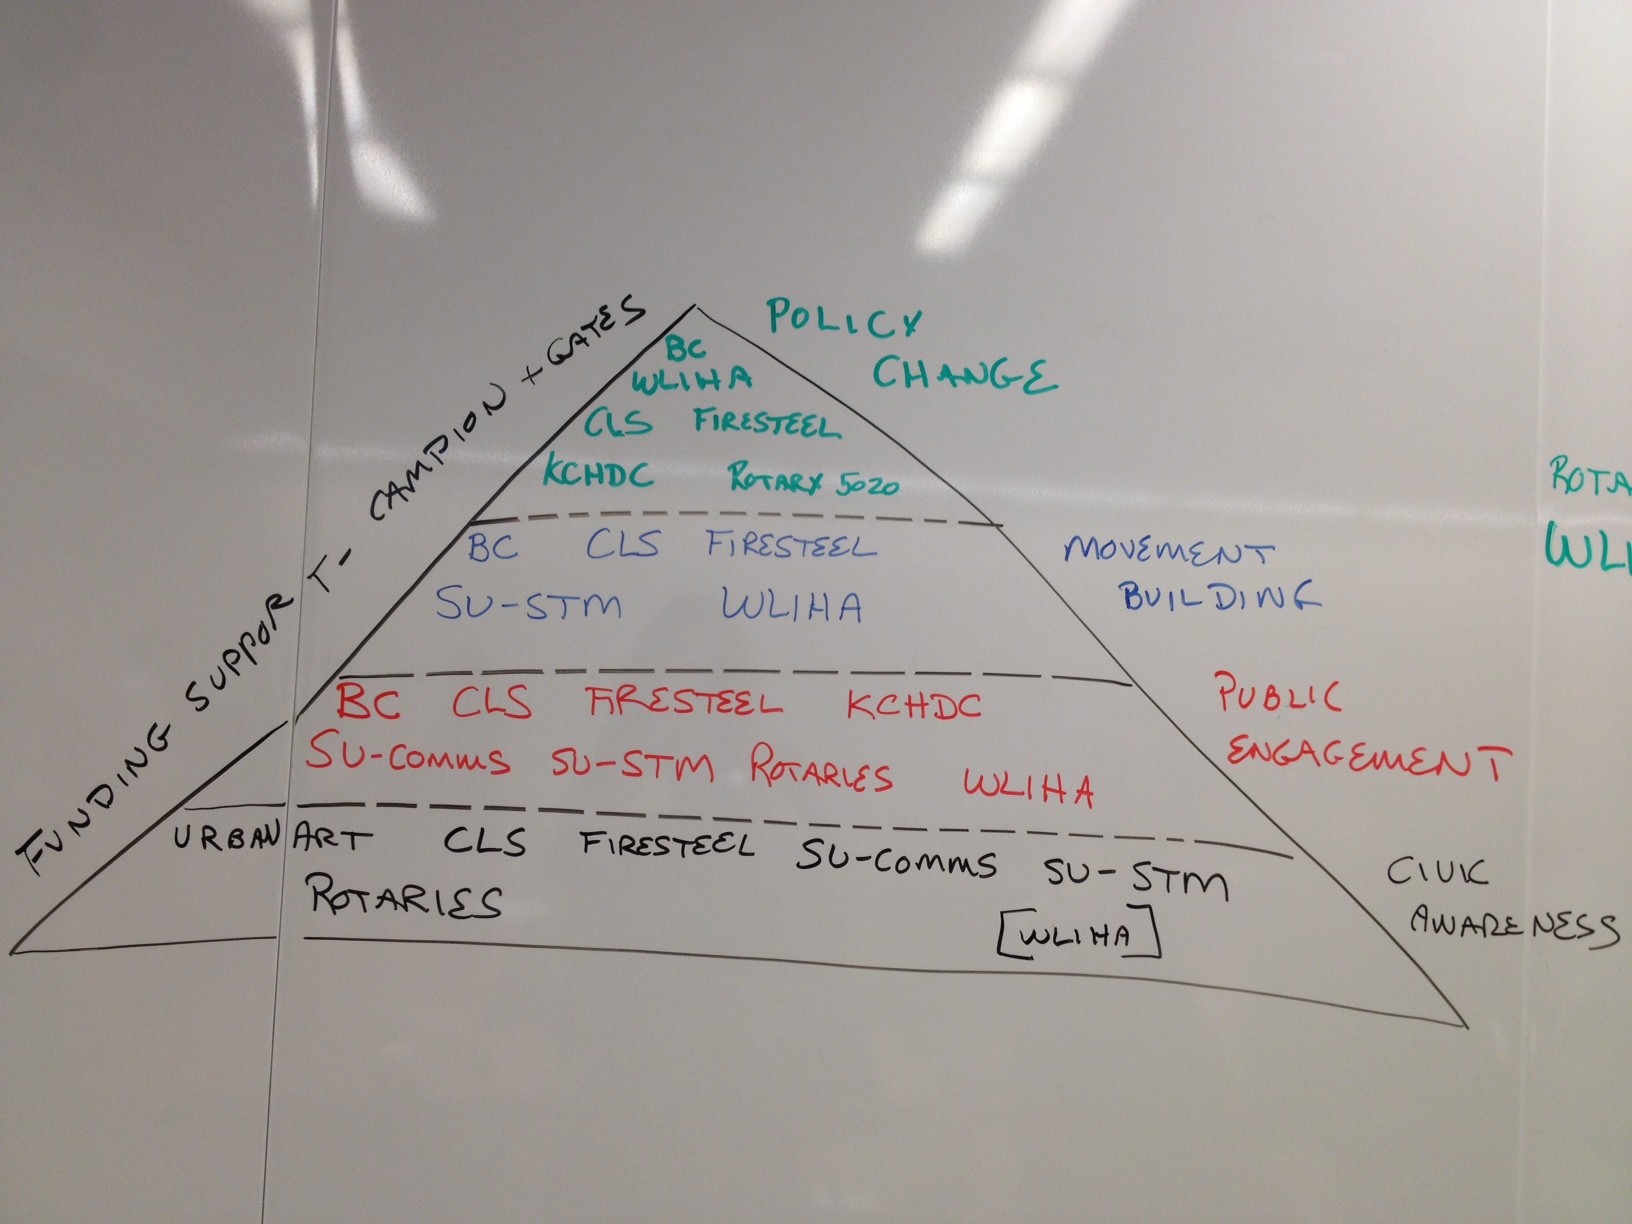 FUNDING SUPPORT - CAMPION + GATES
POLICY
CHANGE
BC
WLIHA
CLS FIRESTEEL
KCHDC ROTARY 5020
BC CLS FIRESTEEL
SU-STM WLIHA
MOVEMENT
BUILDING
BC CLS FIRESTEEL KCHDC
SU-COMMS SU-STM ROTARIES WLIHA
PUBLIC
ENGAGEMENT
URBAN ART CLS FIRESTEEL SU-COMMS SU-STM
ROTARIES [WLIHA]
CIVIC
AWARENESS
ROTA
WLI